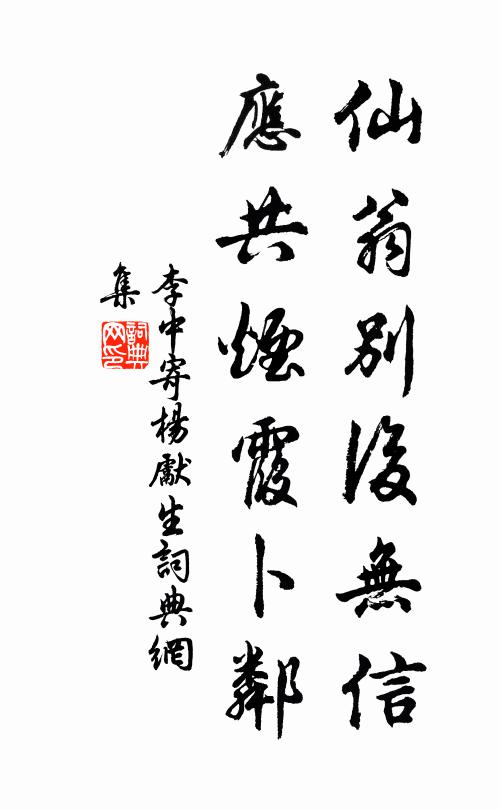 仙翁別後無信
應共煙霞卜鄰
李中寄楊獻生詞典網
集
詞典網印